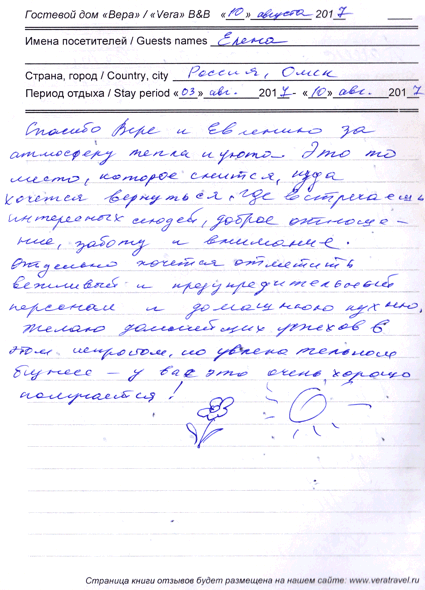 Гостевой дом «Вера» / «Vera» B&B «10» августа 2017
Имена посетителей / Guests names Елена
Страна, город / Country, city Россия, Омск
Период отдыха / Stay period «03» авг. 2017 - «10» авг. 2017
Спасибо Вере и Евгению за
атмосферу тепла и уюта. Это то
место, которое снится, куда
хочется вернуться, где встречаешь
интересных людей, доброе отноше-
ние, заботу и внимание.
Отдельно хочется отметить
вежливый и предупредительный
персонал и домашнюю кухню.
Желаю дальнейших успехов в
этом непростом, но увлекательном
бизнесе - у вас это очень хорошо
получается!
Страница книги отзывов будет размещена на нашем сайте: www.veratravel.ru